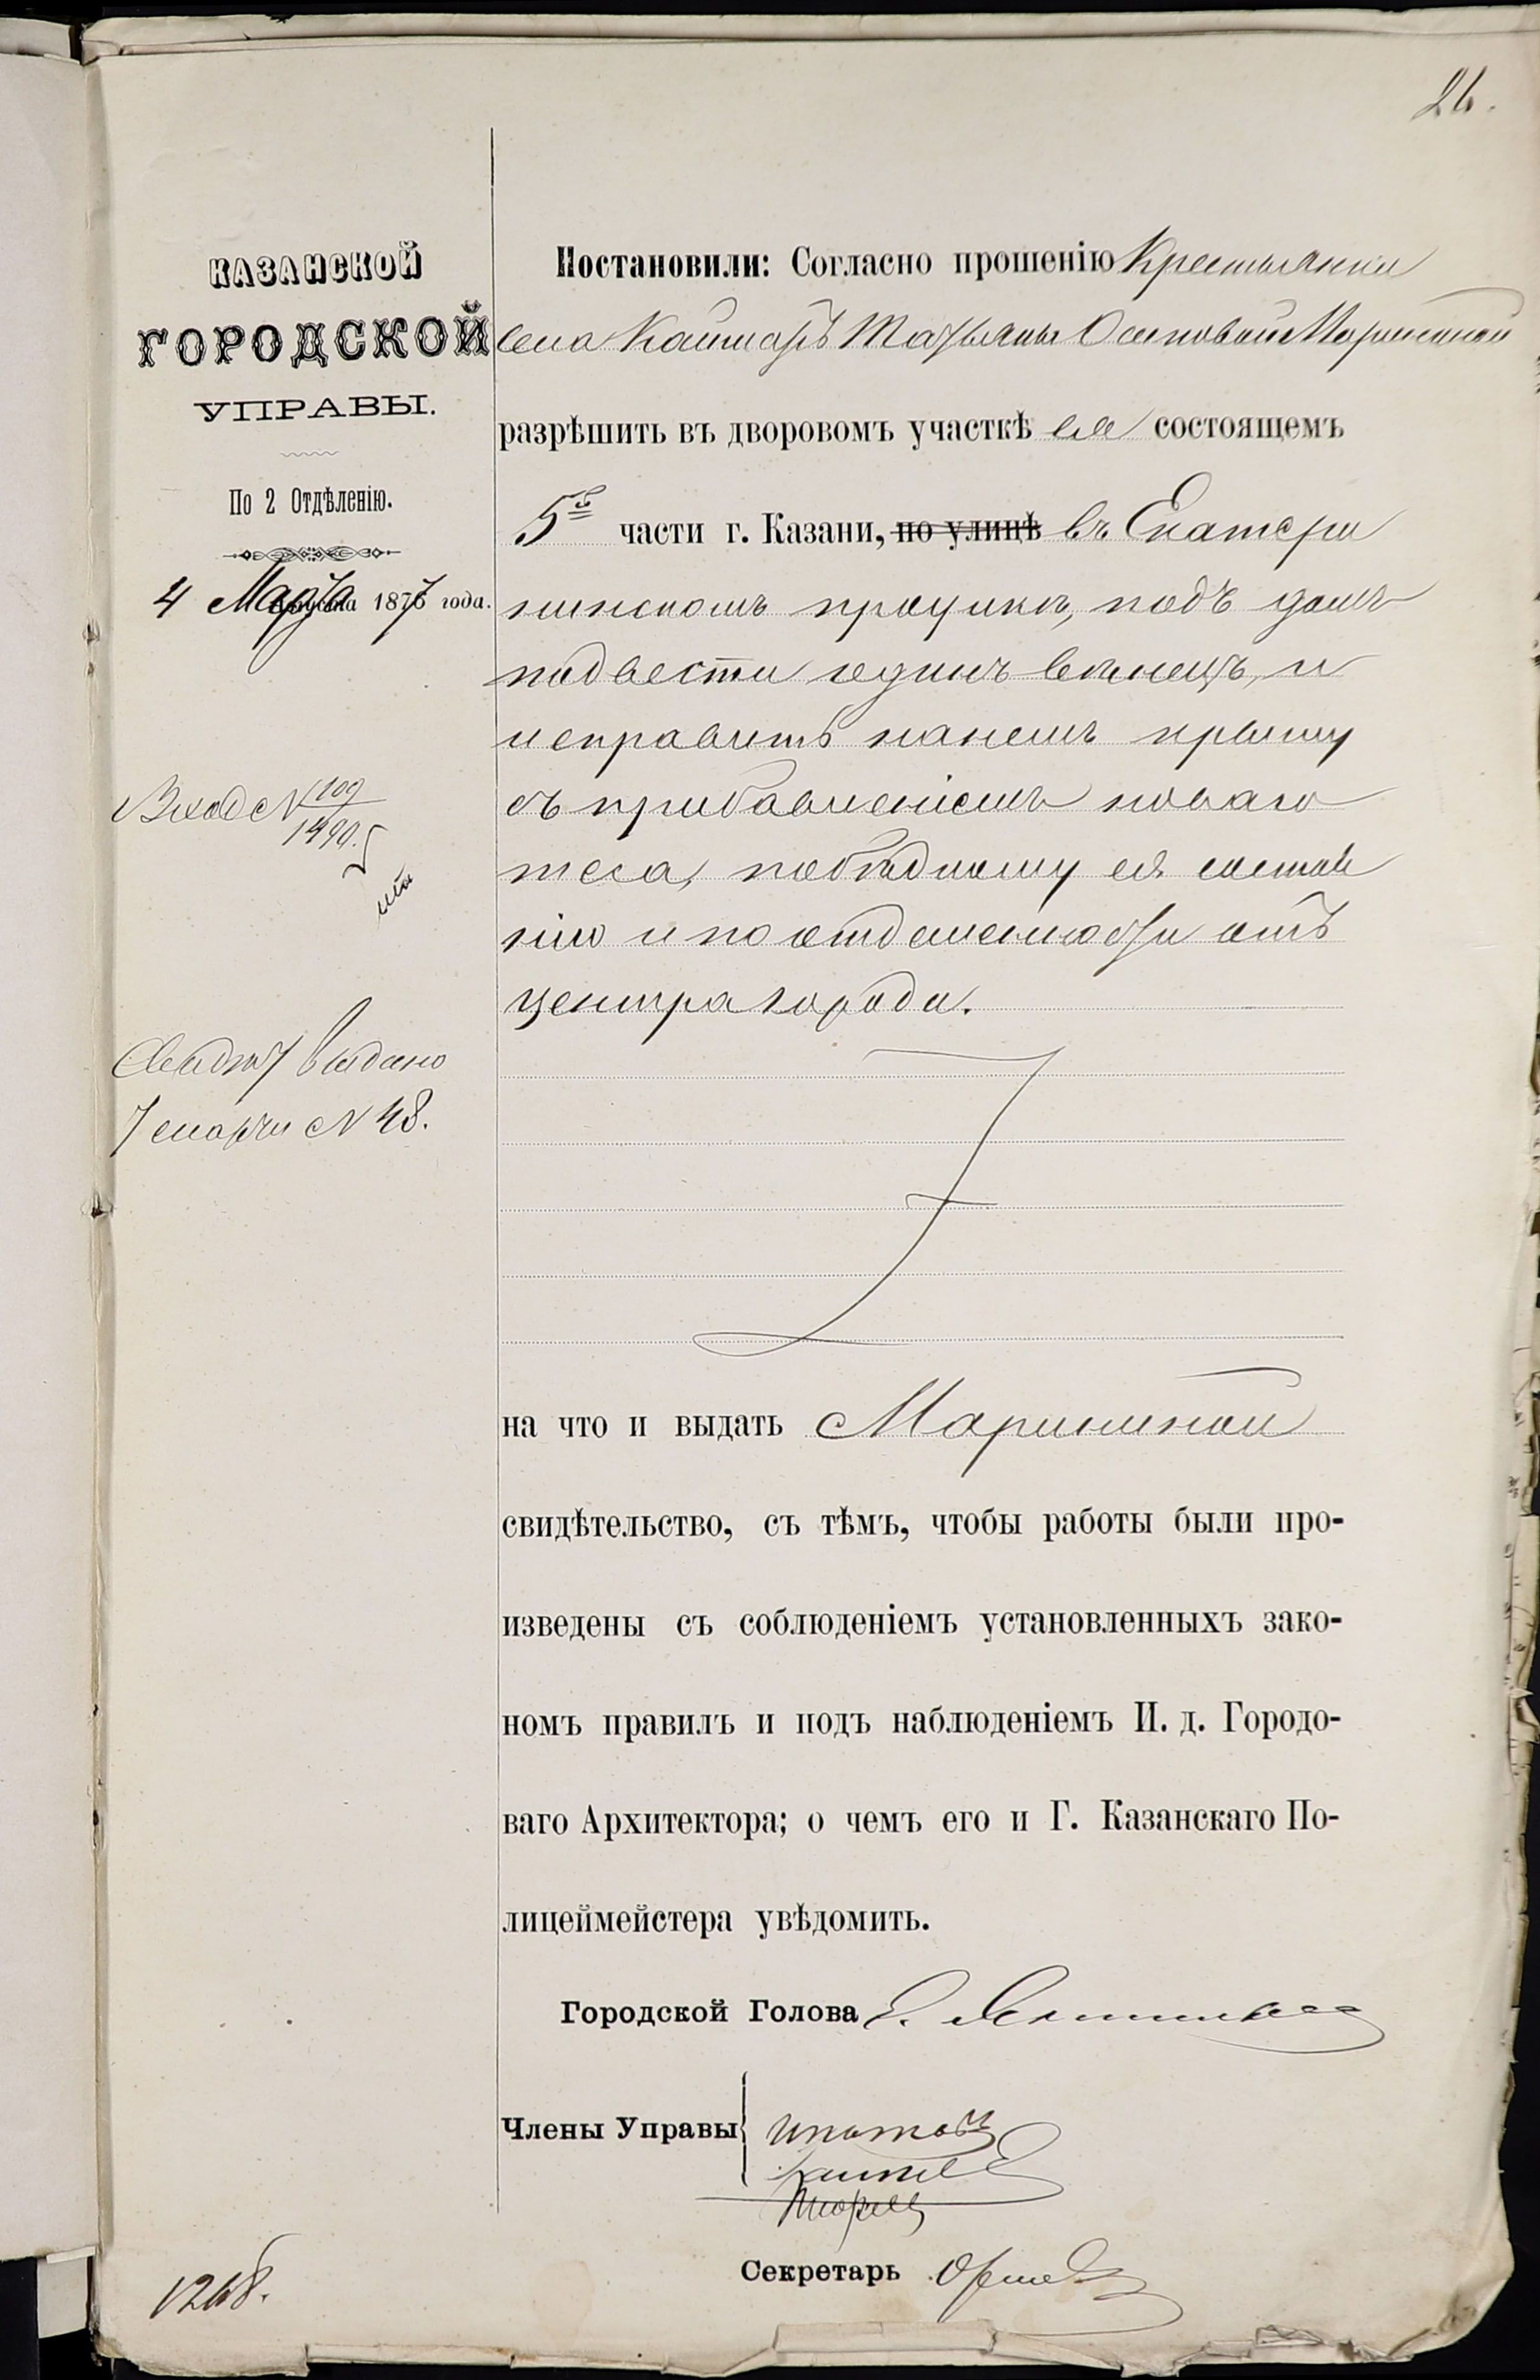 26.
КАЗАНСКОЙ
ГОРОДСКОЙ
УПРАВЫ.
По 2 Отдѣленію.
4 Марта 1877 года.
Вход № 109
1490.
Свидѣт выдано
7 марта № 48.
Постановили: Согласно прошенію Крестьянки
села Каймаръ Татьяны Осиповой Марининой
разрѣшить въ дворовомъ участкѣ ея состоящемъ
5й части г. Казани, по улицѣ въ Екатери
нинскомъ проулкѣ, подъ домъ
подвести одинъ венецъ, и
исправить на немъ крышу
съ прибавленіемъ новаго
теса, по бѣдному ея состоя
нію и по отдаленности отъ
центра города.
на что и выдать Марининой
свидѣтельство, съ тѣмъ, чтобы работы были про-
изведены съ соблюденіемъ установленныхъ зако-
номъ правилъ и подъ наблюденіемъ И. д. Городо-
ваго Архитектора; о чемъ его и Г. Казанскаго По-
лицеймейстера увѣдомить.
Городской Голова
Члены Управы
Секретарь
1268.